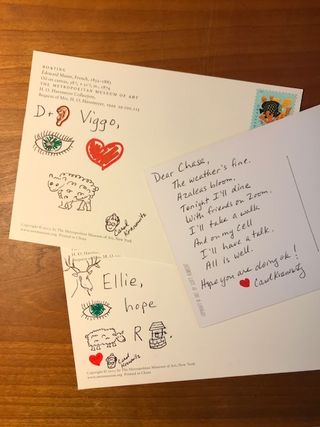 BOATING
Edouard Manet, French, 1832–1883
Oil on canvas, 38¼ x 51¼ in., 1874
THE METROPOLITAN MUSEUM OF ART
H. O. Havemeyer Collection,
Bequest of Mrs. H. O. Havemeyer, 1929 29.100.115
D+ Viggo,
Carol
Copyright © by The Metropolitan Museum of Art, New York
www.metmuseum.org Printed in China
Dear Chase,
The weather's fine.
Azaleas bloom.
Tonight I'll dine
With friends on Zoom.
I'll take a walk
And on my cell
I'll have a talk.
All Is well.
Hope you are doing ok!
H. O.
Ellie,
hope
R .
Carol
Copyright © by The Metropolitan Museum of Art, New York
www.metmuseum.org Printed in China